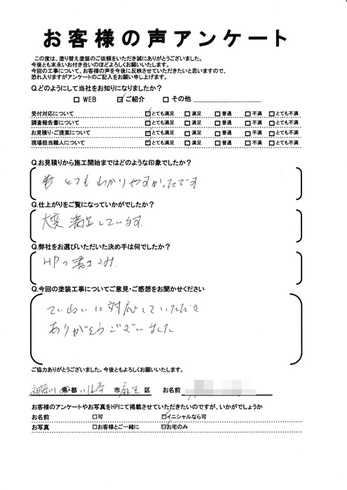 お客様の声アンケート
この度は、塗り替え塗装のご依頼をいただき誠にありがとうございました。
今後とも末永いお付き合いのほどよろしくお願いいたします。
今回の工事について、お客様の声を今後に反映させていただきたいと思いますので、
恐れ入りますがアンケートのご記入をお願い申し上げます。
Q.どのようにして当社をお知りになりましたか?
□ WEB ☑ ご紹介 □ その他
受付対応について ☑とても満足 □満足 □普通 □不満 □とても不満
調査報告書について ☑とても満足 □満足 □普通 □不満 □とても不満
お見積り・ご提案について ☑とても満足 □満足 □普通 □不満 □とても不満
現場担当職人について ☑とても満足 □満足 □普通 □不満 □とても不満
Q.お見積から施工開始まではどのような印象でしたか?
とてもわかりやすかったです
Q.仕上がりをご覧になっていかがでしたか?
大変満足しています
Q.弊社をお選びいただいた決め手は何でしたか?
HPの書き込み
Q.今回の塗装工事についてご意見・ご感想をお聞かせください
ていねいに対応していただき
ありがとうございました
ご協力ありがとうございました。今後ともよろしくお願いいたします。
県・都 川崎 市 麻生 区 お名前
お客様のアンケートやお写真をHPにて掲載させていただきたいのですが、いかがでしょうか
お名前 □可 ☑イニシャルなら可
お写真 □お客様とご一緒に ☑お宅のみ